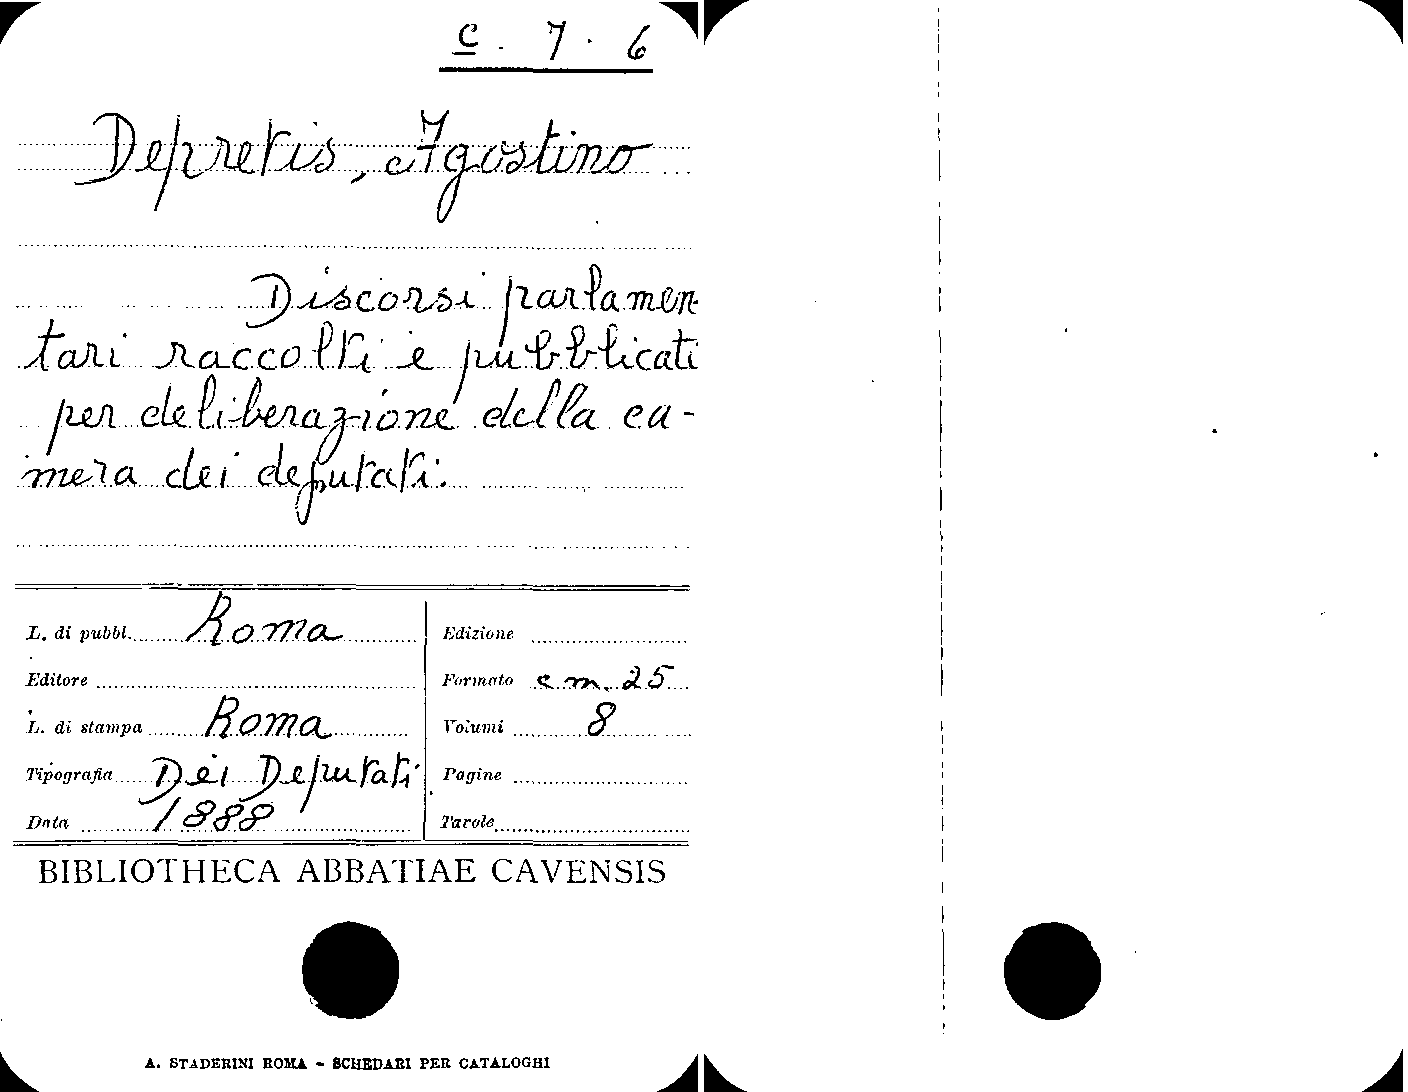 c. 7. 6
Depretis, Agostino
Discorsi parlamen-
tari raccolti e pubblicati
per deliberazione della ca-
mera dei deputati.
L. di pubbl. Roma
Edizione
Editore
Formato cm. 25
L. di stampa Roma
Volumi 8
Tipografia Dei Deputati
Pagine
Data 1888
Tavole
BIBLIOTHECA ABBATIAE CAVENSIS
A. STADERINI ROMA - SCHEDARI PER CATALOGHI